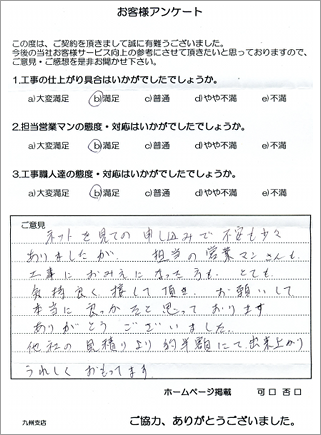 お客様アンケート
この度は、ご契約を頂きまして誠に有難うございました。
今後の当社お客様サービス向上の参考にさせて頂きたいと思っておりますので、
ご意見・ご感想を是非お聞かせ下さい。
1.工事の仕上がり具合はいかがでしたでしょうか。
a)大変満足 b)満足 c)普通 d)やや不満 e)不満
2.担当営業マンの態度・対応はいかがでしたでしょうか。
a)大変満足 b)満足 c)普通 d)やや不満 e)不満
3.工事職人達の態度・対応はいかがでしたでしょうか。
a)大変満足 b)満足 c)普通 d)やや不満 e)不満
ご意見
ネットを見ての申し込みで不安も少々
ありましたが 担当の営業マンさんも
工事におみえになった方も、とても
気持良く接して頂き、お願いして
本当に良かったと思っております
ありがとうございました。
他社の見積りより約半額にて、出来上がり
うれしくおもってます
ホームページ掲載 可口 否口
九州支店
ご協力、ありがとうございました。